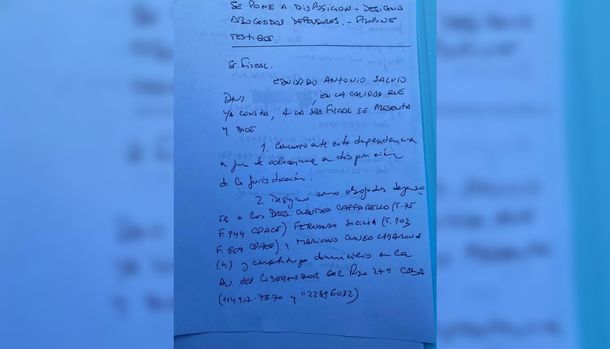 SE PONE A DISPOSICION - DESIGNA
ABOGADOS DEFENSORES. - PROPONE
TESTIGOS.
Sr Fiscal:
EDUARDO ANTONIO SALVIO
DNI , EN LA CALIDAD QUE
YA CONSTA, A LA SRA FISCAL SE PRESENTA
Y DICE
1. Concurro ante esta dependencia
a fin de colocarme a disposición
de la jurisdicción.
2. Designo como abogados defenso
res a los DRES. CAFFARELLO (T. 75
F 944 CPACF) FERNANDO SICILIA (T. 103
F 809 CPACF) y MARIANO CUNEO LIBARONA
(h) y constituyo domicilio en la
Av. del LIBERTADOR 602 Piso 27 CABA
(114917-7670 y 1122896032)